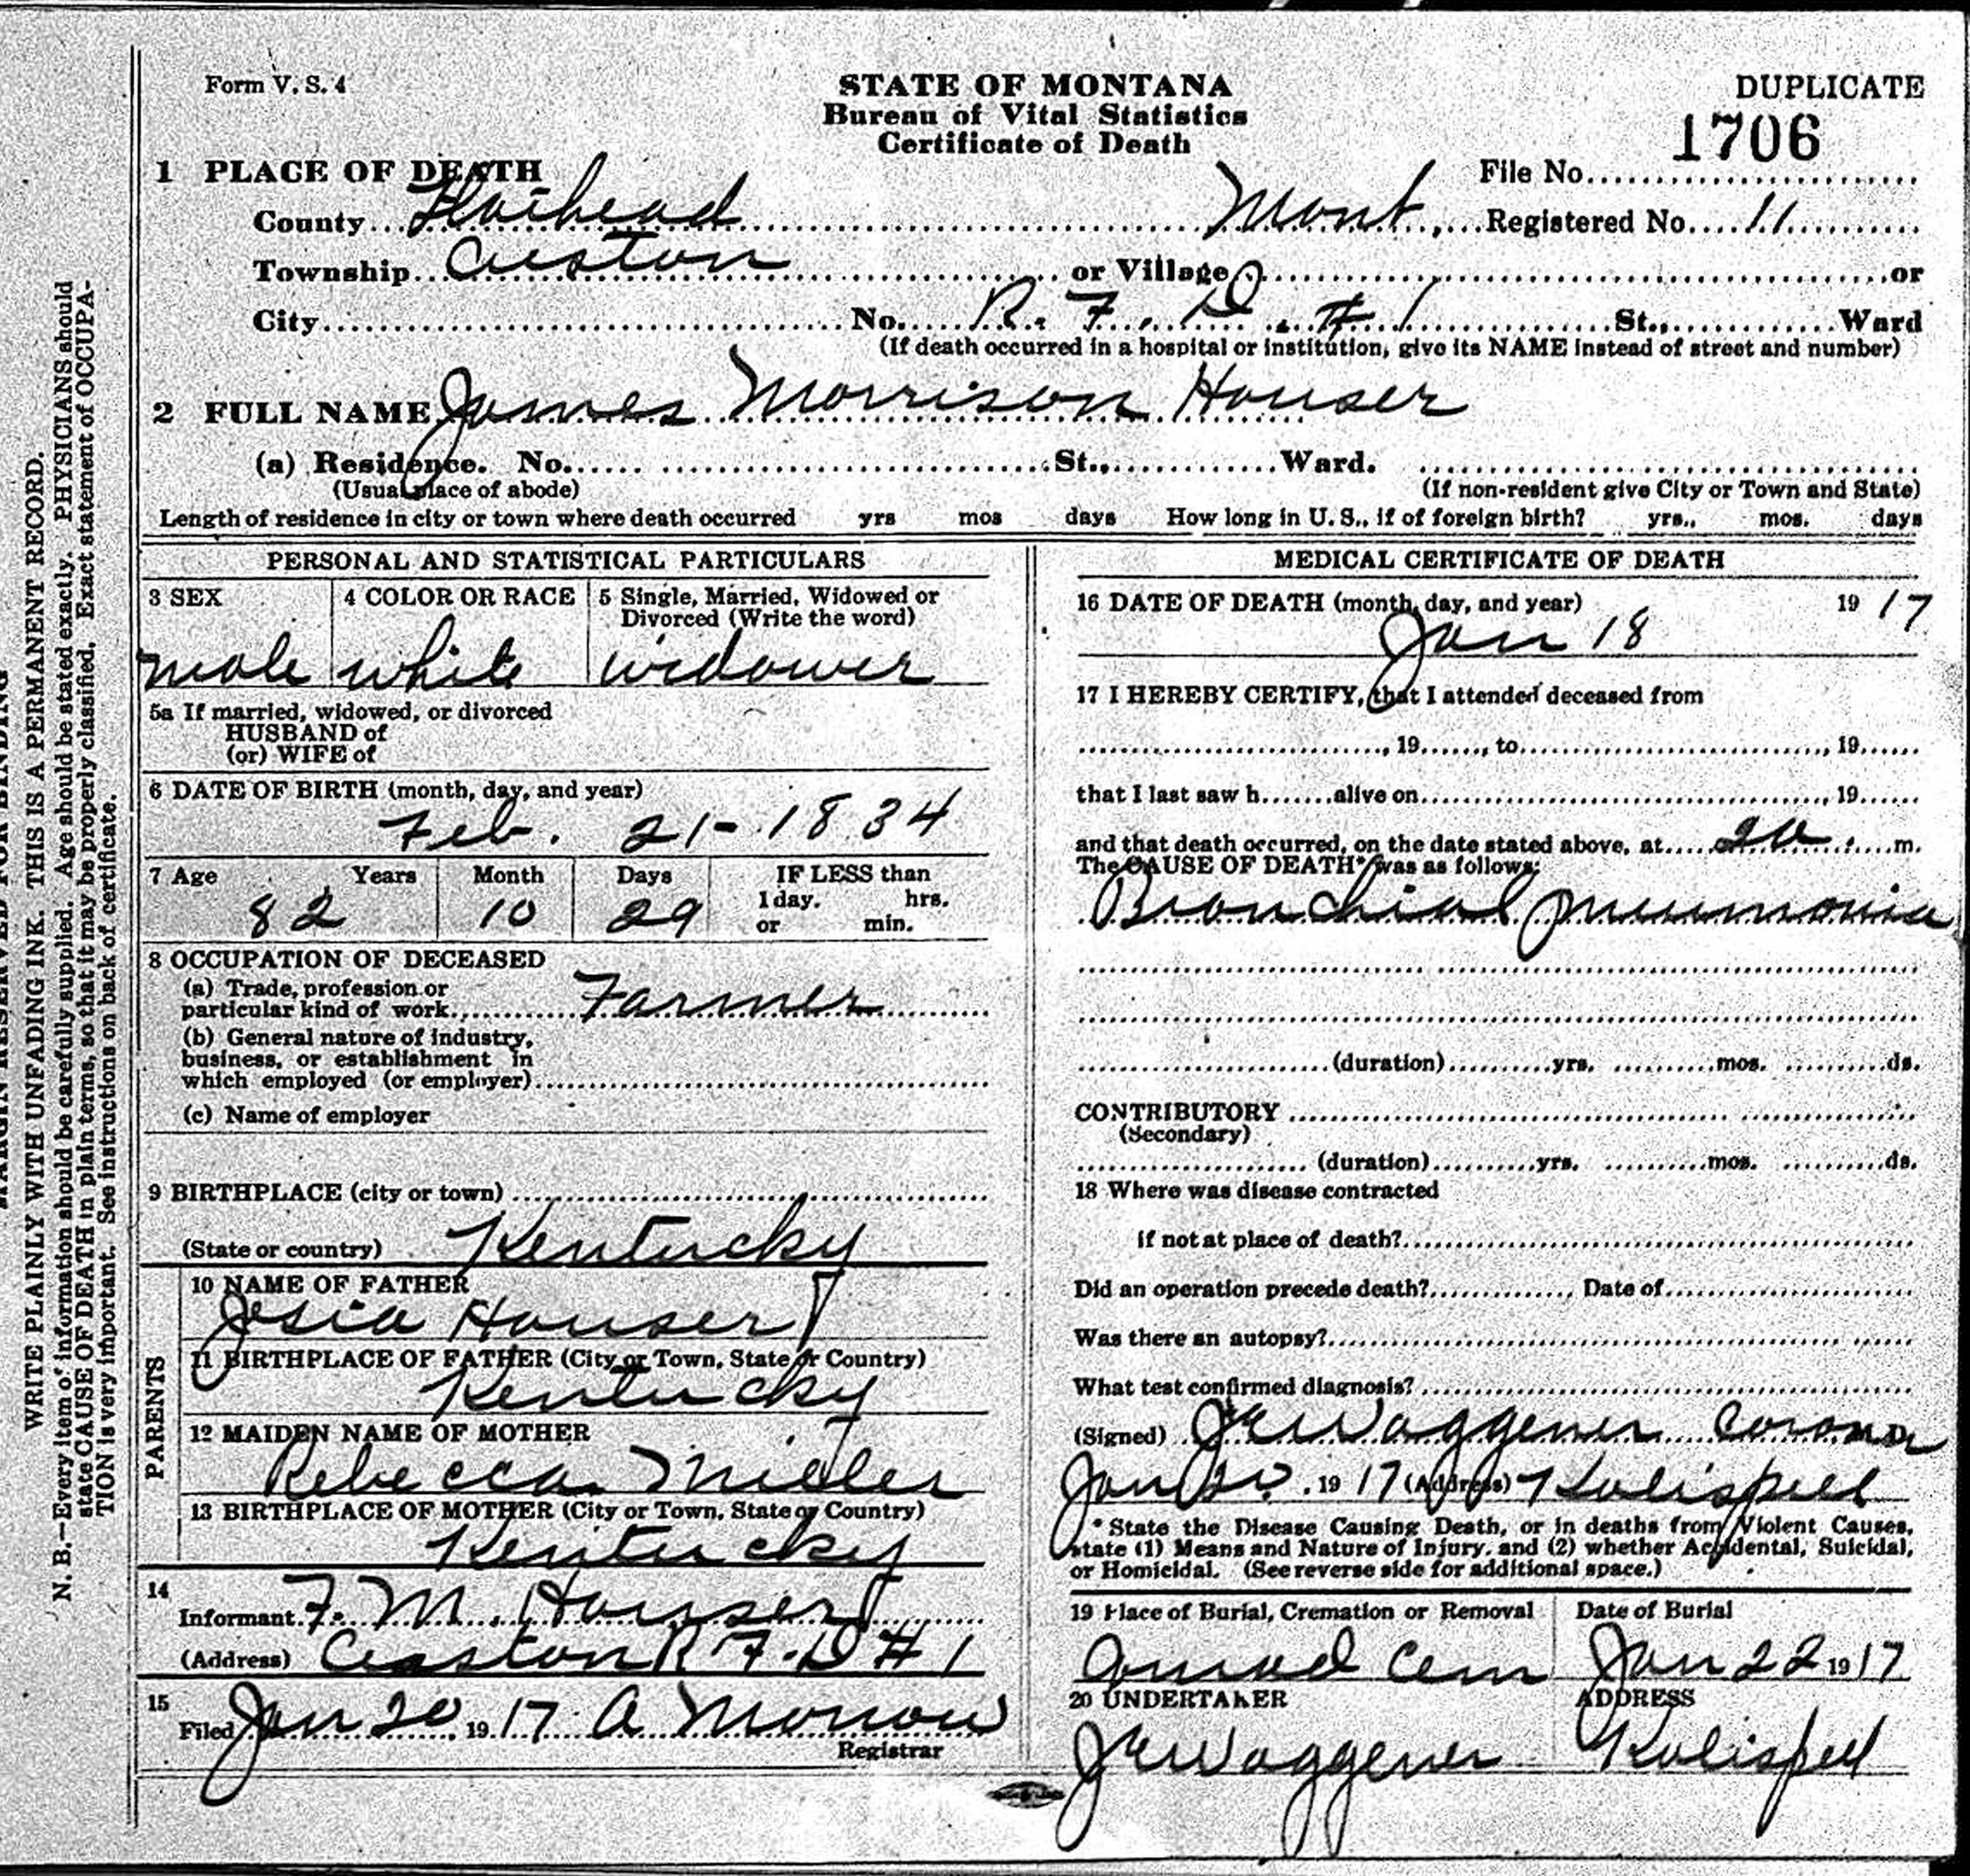 Form V. S. 4
STATE OF MONTANA
DUPLICATE
Bureau of Vital Statistics
1706
Certificate of Death
1 PLACE OF DEATH
File No.
County Flathead Mont, Registered No. 11
Township Creston or Village or
City No. R. F. D. # 1 St., Ward
(If death occurred in a hospital or institution, give its NAME instead of street and number)
2 FULL NAME James Morrison Houser
(a) Residence. No. St., Ward.
(Usual place of abode) (If non-resident give City or Town and State)
Length of residence in city or town where death occurred yrs mos days How long in U. S., if of foreign birth? yrs., mos. days
PERSONAL AND STATISTICAL PARTICULARS
3 SEX 4 COLOR OR RACE 5 Single, Married, Widowed or
Divorced (Write the word)
male white widower
5a If married, widowed, or divorced
HUSBAND of
(or) WIFE of
6 DATE OF BIRTH (month, day, and year)
Feb. 21- 1834
7 Age Years Month Days IF LESS than
1 day. hrs.
82 10 29
or min.
8 OCCUPATION OF DECEASED
(a) Trade, profession or
particular kind of work Farmer
(b) General nature of industry,
business, or establishment in
which employed (or employer)
(c) Name of employer
9 BIRTHPLACE (city or town)
(State or country) Kentucky
PARENTS
10 NAME OF FATHER
Josia Houser
11 BIRTHPLACE OF FATHER (City or Town, State or Country)
Kentucky
12 MAIDEN NAME OF MOTHER
Rebecca Miller
13 BIRTHPLACE OF MOTHER (City or Town, State or Country)
Kentucky
14
Informant F. M. Houser
(Address) Creston R F. D # 1
15
Filed Jan 20, 19 17 A Morrow
Registrar
MEDICAL CERTIFICATE OF DEATH
16 DATE OF DEATH (month, day, and year) 19 17
Jan 18
17 I HEREBY CERTIFY, that I attended deceased from
, 19 , to , 19
that I last saw h alive on , 19
and that death occurred, on the date stated above, at m.
The CAUSE OF DEATH* was as follows:
Bronchial pneumonia
(duration) yrs. mos. ds.
CONTRIBUTORY
(Secondary)
(duration) yrs. mos. ds.
18 Where was disease contracted
if not at place of death?
Did an operation precede death? Date of
Was there an autopsy?
What test confirmed diagnosis?
(Signed) J E Waggener Coroner
Jan 20. 19 17 (Address) Kalispell
* State the Disease Causing Death, or in deaths from Violent Causes,
state (1) Means and Nature of Injury, and (2) whether Accidental, Suicidal,
or Homicidal. (See reverse side for additional space.)
19 Place of Burial, Cremation or Removal Date of Burial
Conrad Cem Jan 22 19 17
20 UNDERTAKER ADDRESS
J E Waggener Kalispell
MARGIN RESERVED FOR BINDING
WRITE PLAINLY WITH UNFADING INK. THIS IS A PERMANENT RECORD.
N. B.—Every item of information should be carefully supplied. Age should be stated exactly. PHYSICIANS should
state CAUSE OF DEATH in plain terms, so that it may be properly classified. Exact statement of OCCUPA-
TION is very important. See instructions on back of certificate.